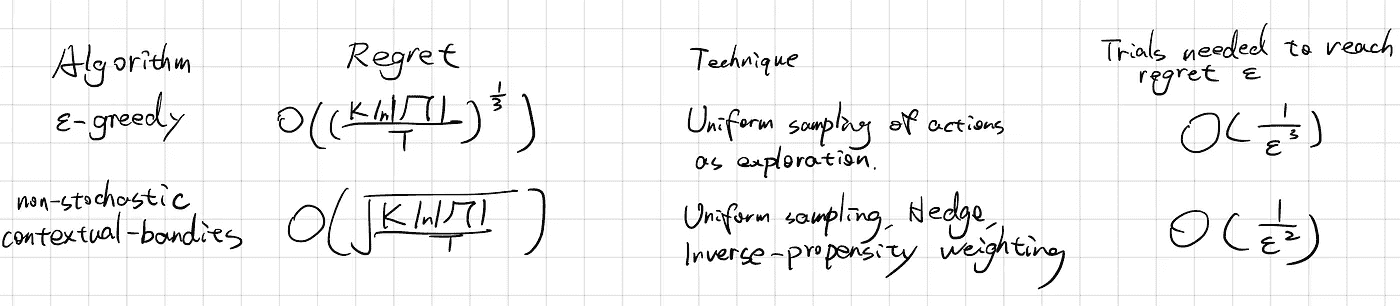 Algorithm Regret Technique Trials needed to reach
regret ε
ε-greedy O((K ln|Π| / T)^{1/3}) Uniform sampling of actions
as exploration. O(1/ε^3)
non-stochastic
contextual-bandies O(√(K ln|Π| / T)) Uniform sampling, Hedge,
Inverse-propensity weighting O(1/ε^2)